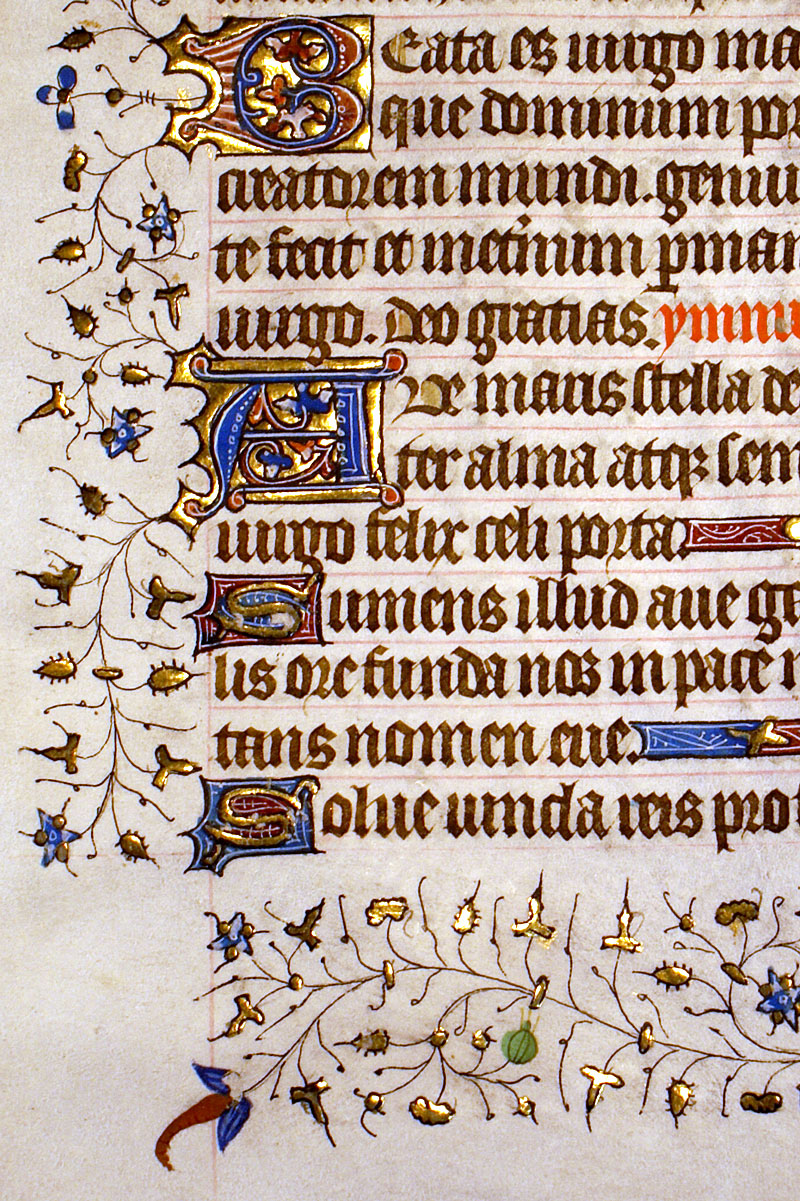 Beata es uirgo ma
que dominum por
creatorem mundi. genui
te fecit et inet̾num ꝑman
uirgo. Deo gratias. ymnu
Aue maris stella de
ter alma atqꝫ sem
uirgo felix celi porta.
Sumens illud aue ga
lis ore funda nos in pace
tans nomen eue.
Solue uincla reis pro